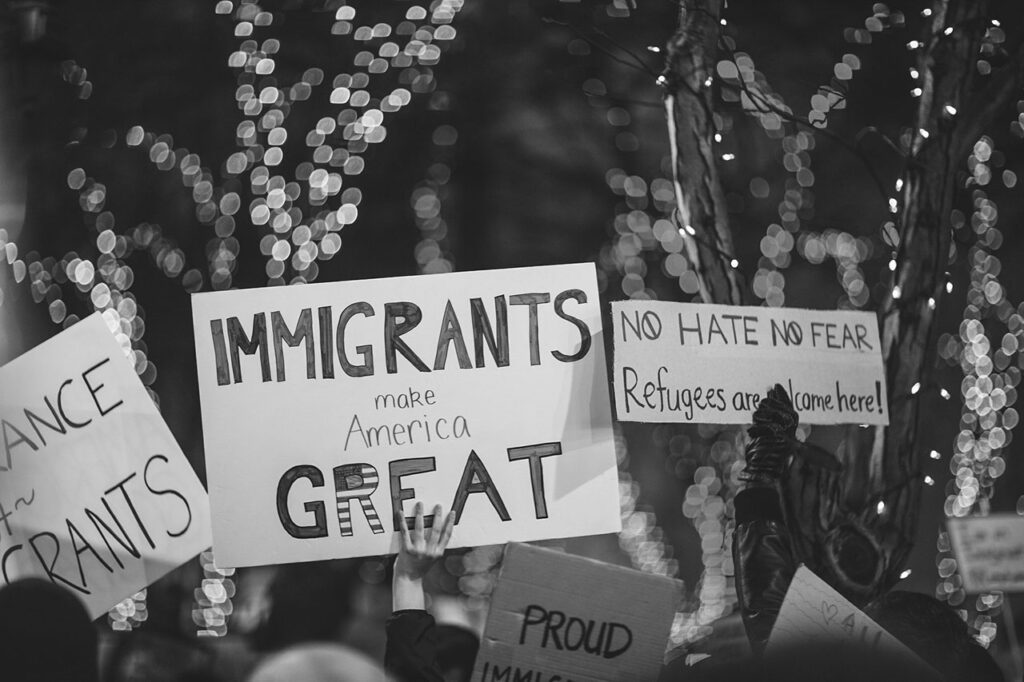 ANCE
GRANTS
IMMIGRANTS
make
America
GREAT
NO HATE NO FEAR
Refugees are welcome here!
PROUD
IMMIG
ALL